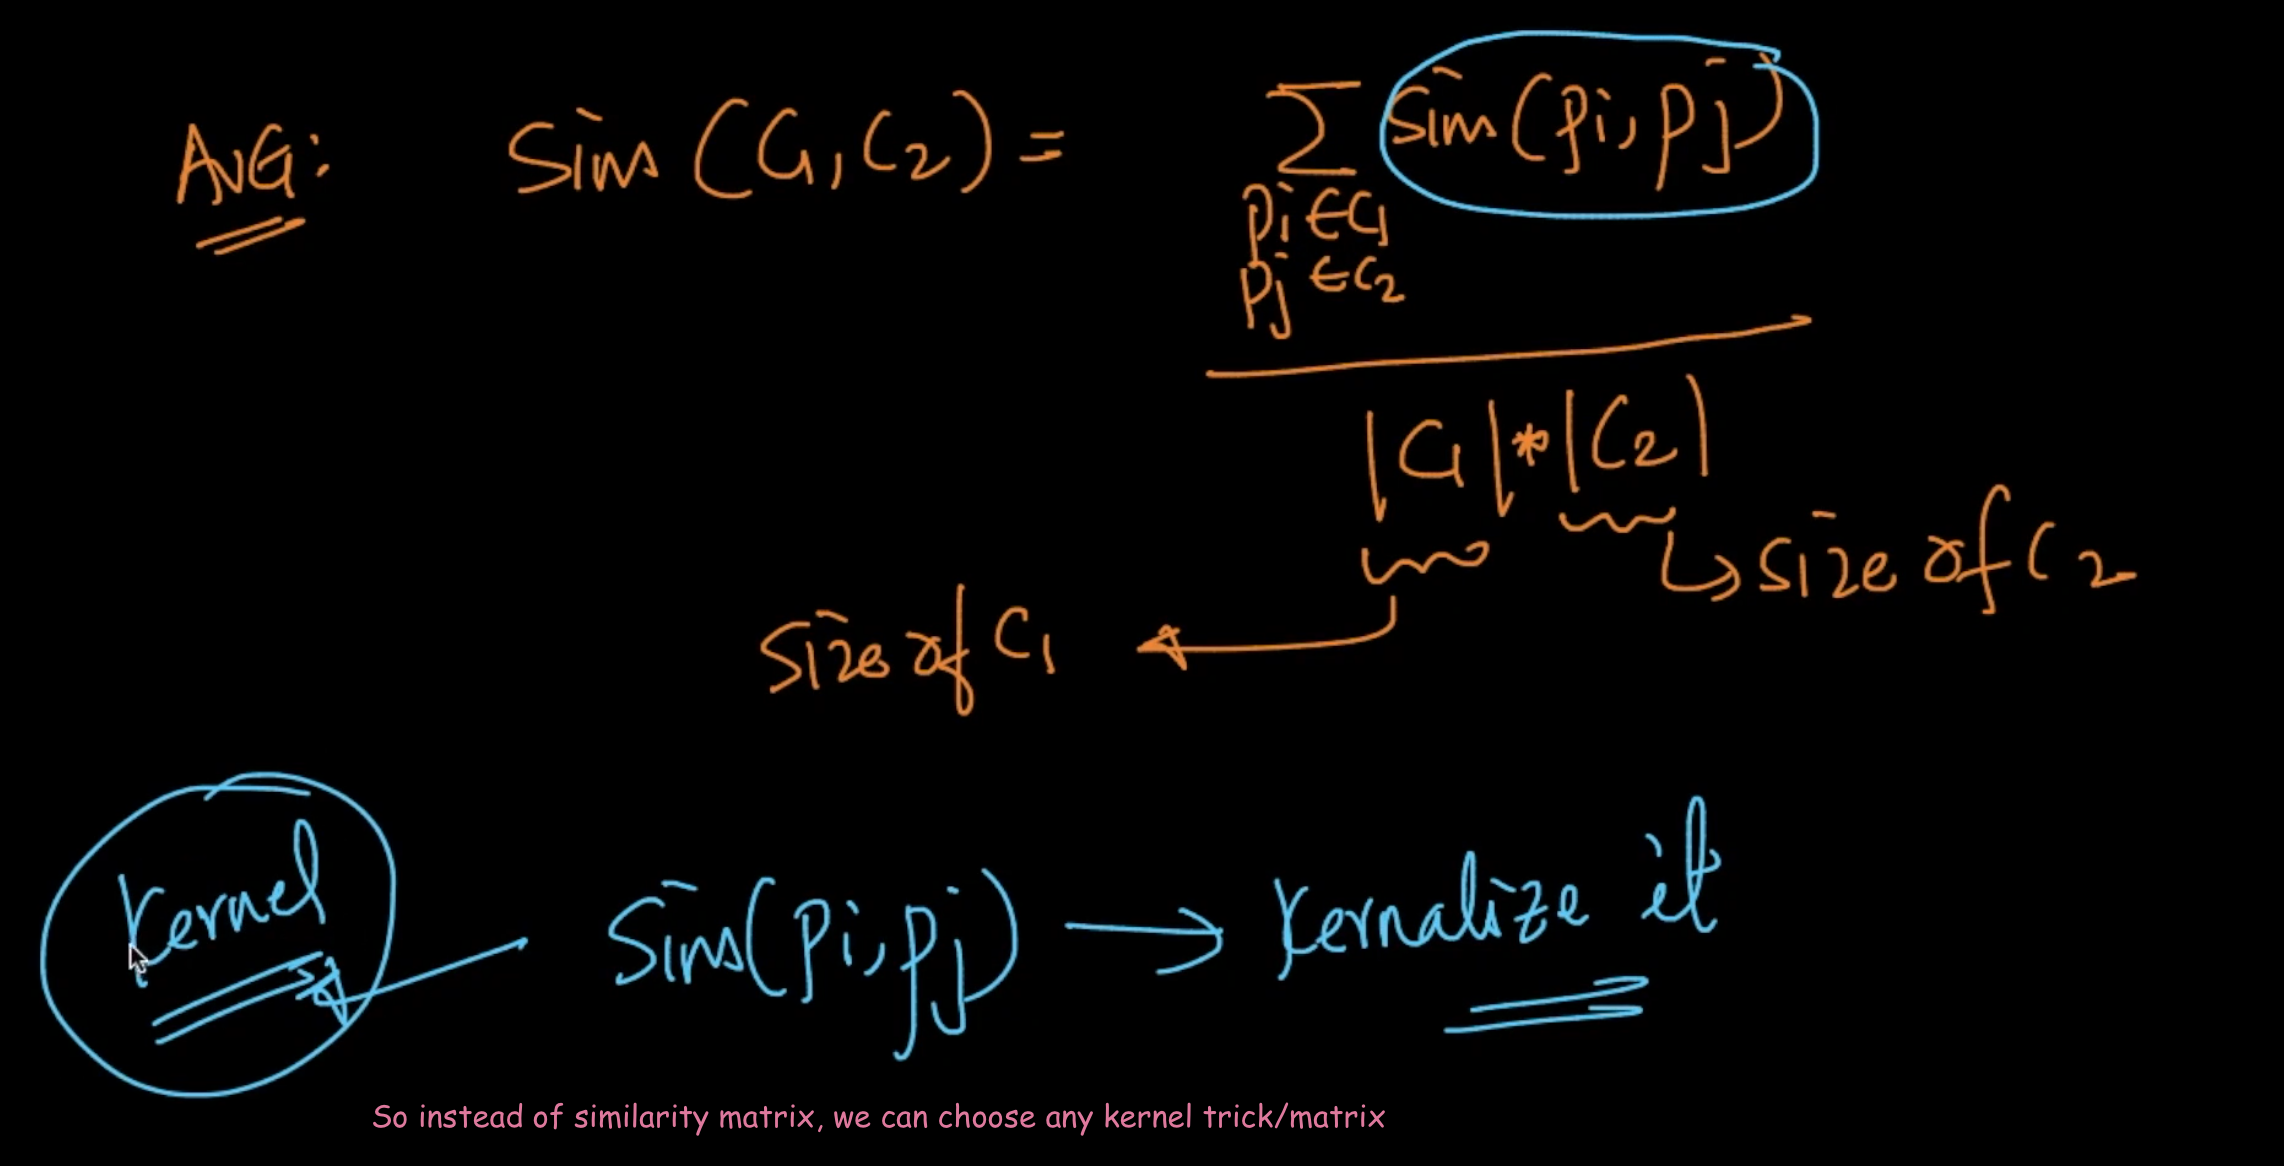 AVG: Sim (C1, C2) = Σ Sim (pi, pj)
pi ∈ C1
pj ∈ C2
|C1| * |C2|
size of C2
size of C1
Kernel
Sim(pi, pj) → Kernalize it
So instead of similarity matrix, we can choose any kernel trick/matrix